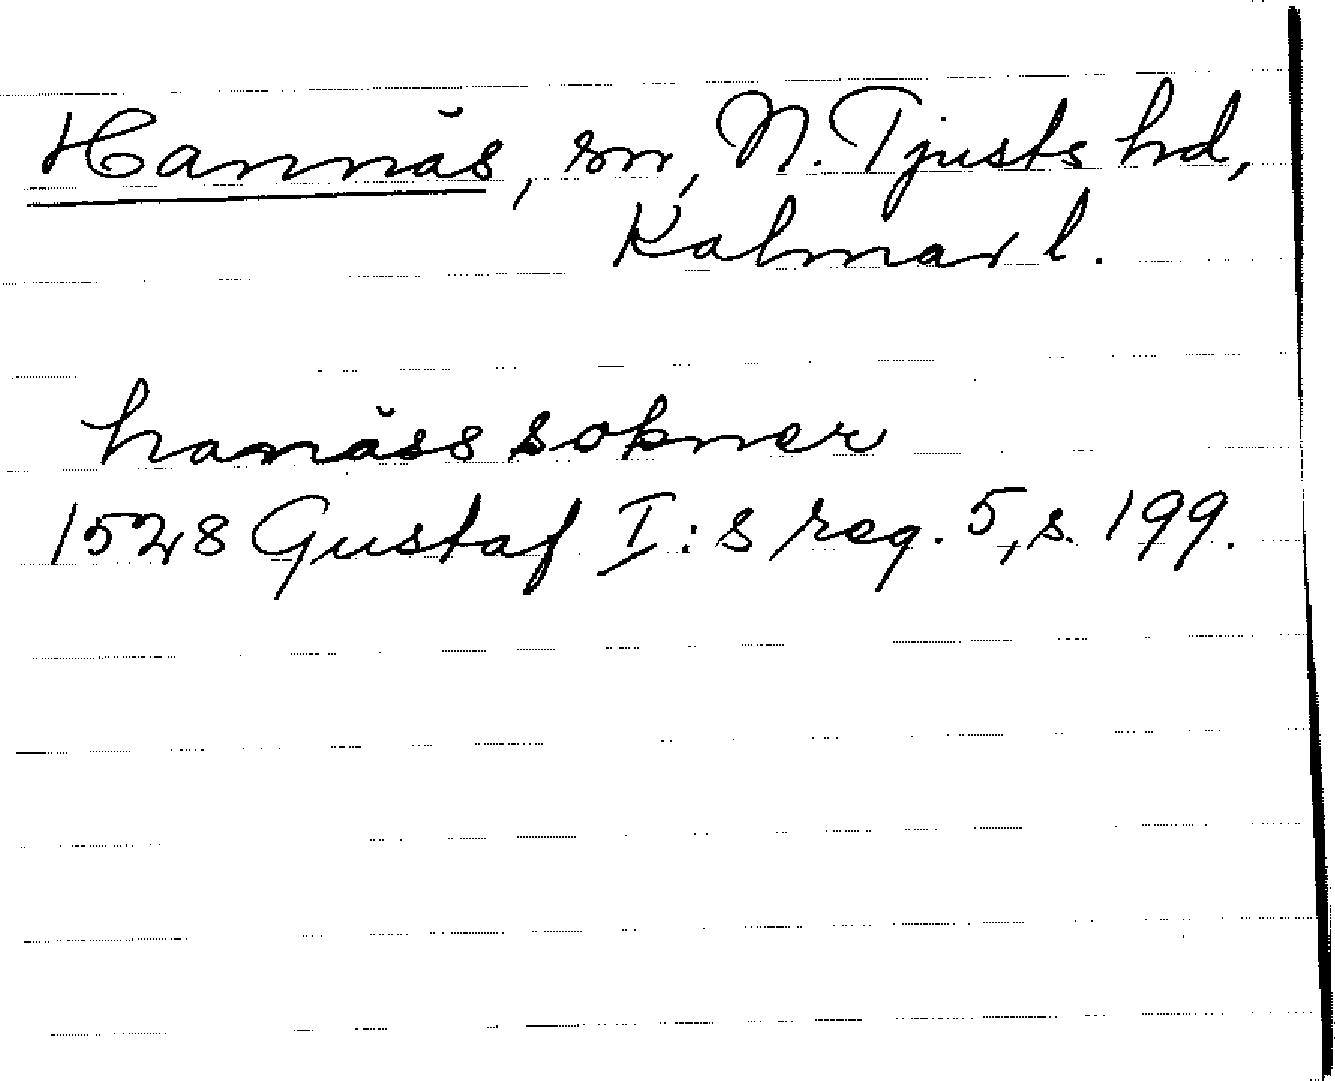 Hannäs, sn, N. Tjusts hd,
Kalmar l.
hanäss sokner
1528 Gustaf I:s reg. 5, s. 199.